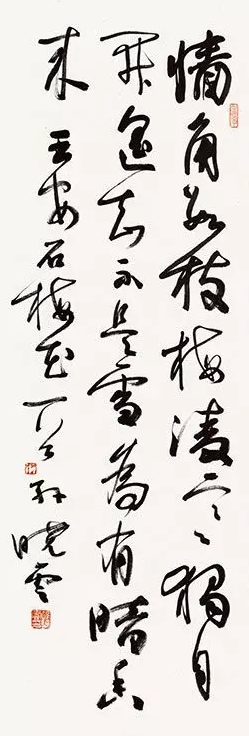 墻角數枝梅凌寒獨自
開遙知不是雪為有暗香
來 王安石梅花 孫曉雲